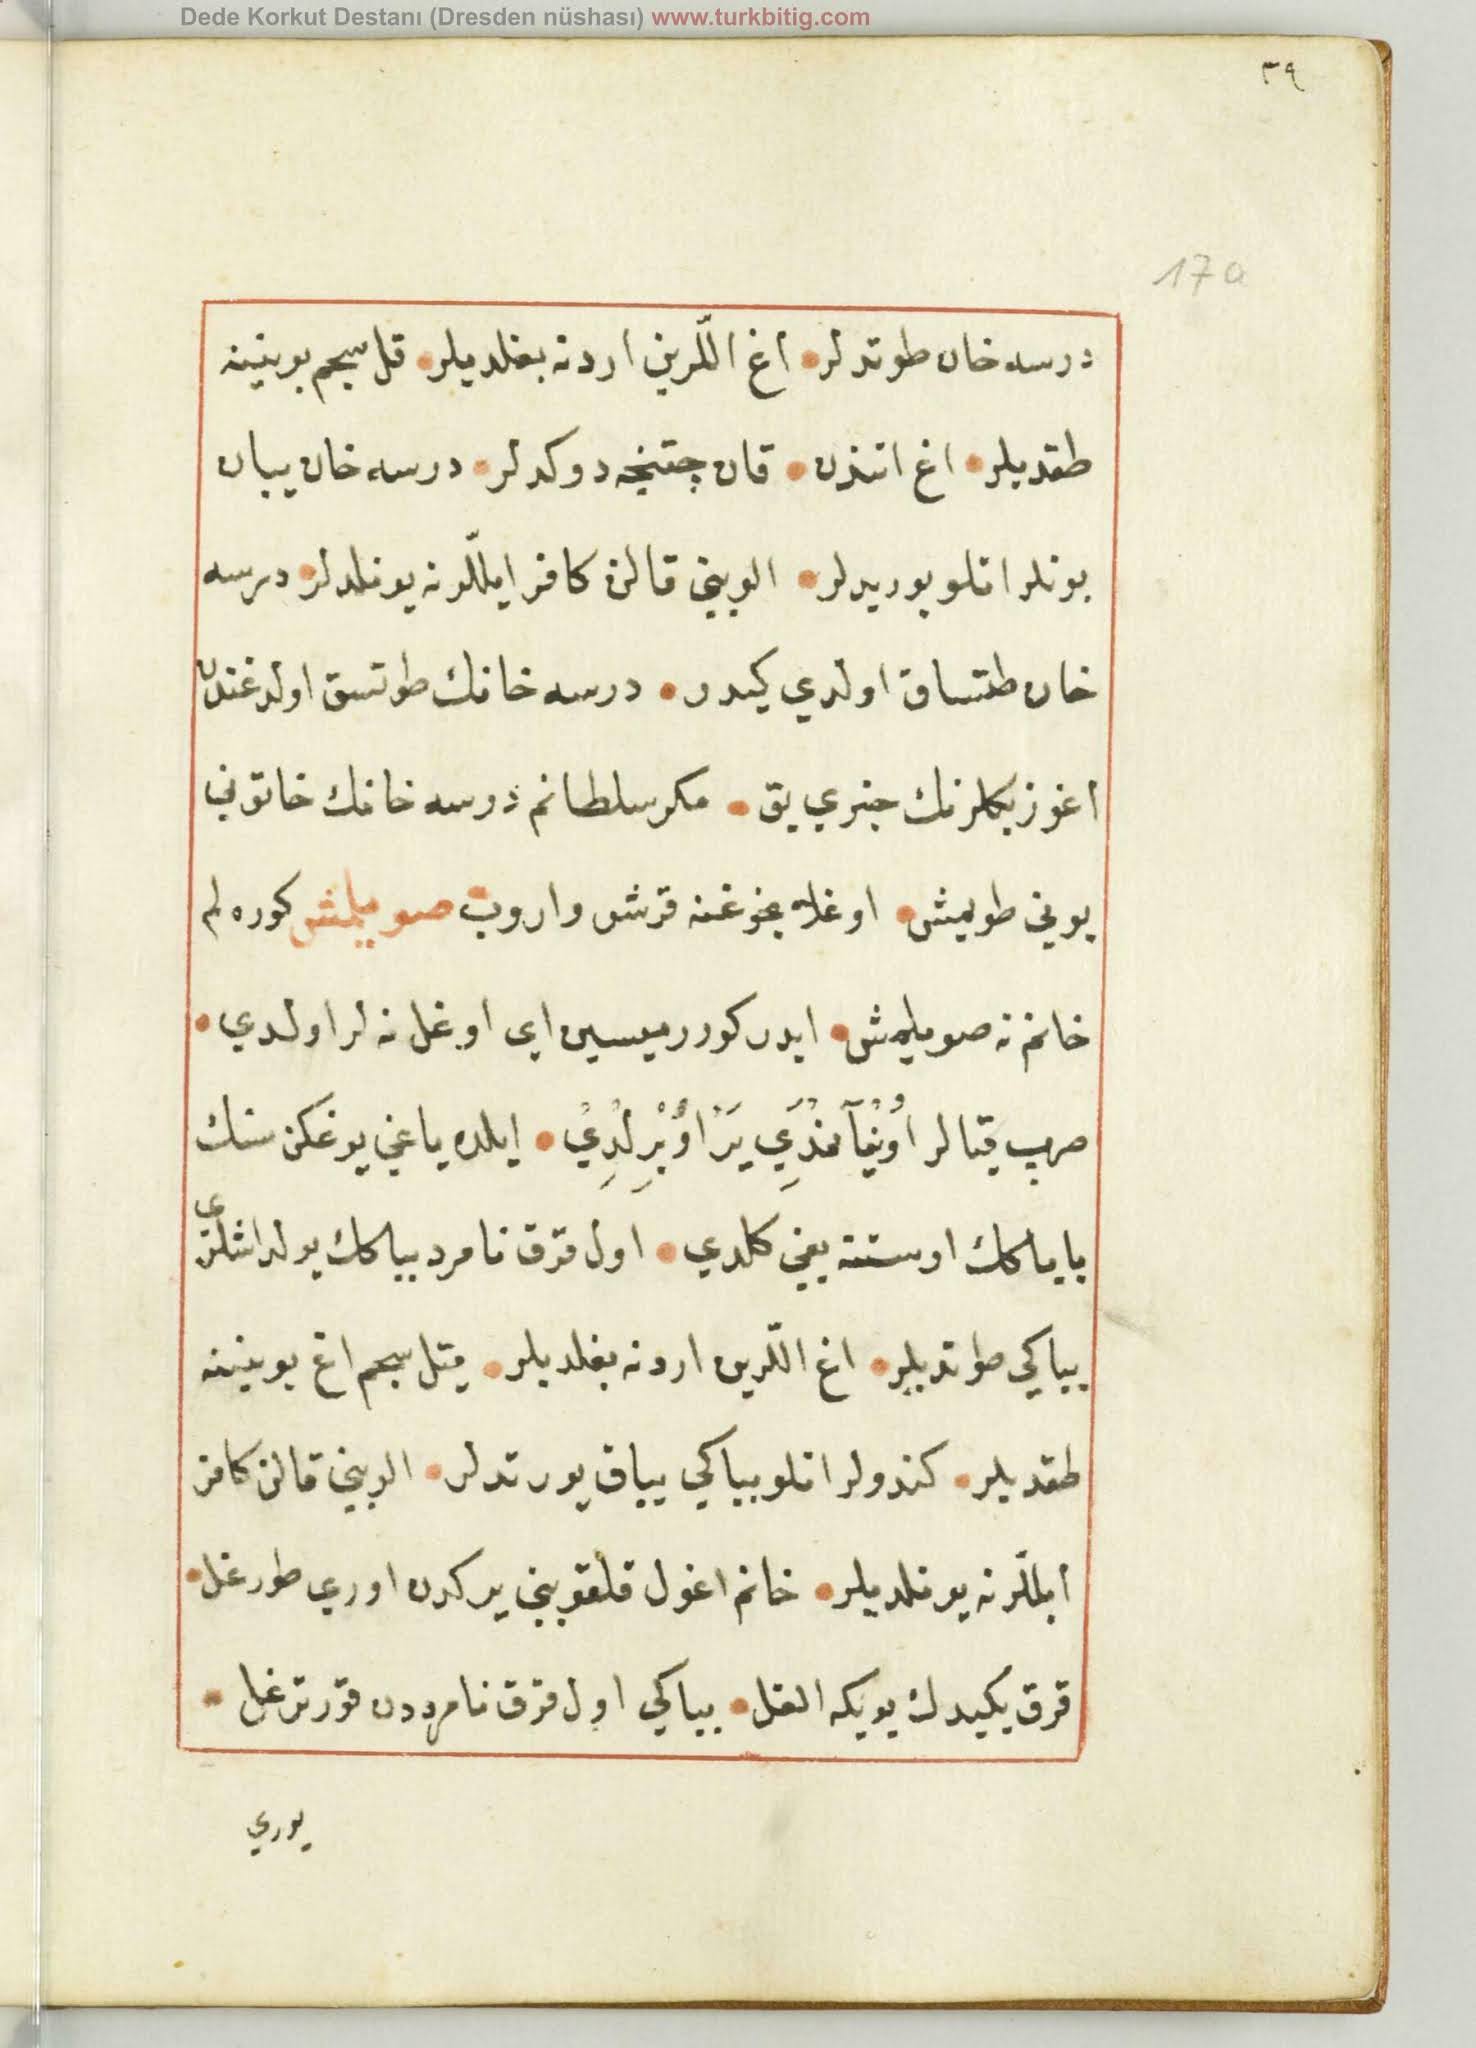 Dede Korkut Destanı (Dresden nüshası) www.turkbitig.com
٣٩
17a
درسه خان طوتدلر • اغ اللّرين اردنه بغلديلر • قل سجم بوينينه
طقديلر • اغ اتندن • قان چقنجه دوكدلر • درسه خان يبان
بونلر اتلو يوريدلر • الوبني قالن كافر ايللّرنه يونلدلر • درسه
خان طتساق اولدي كيدر • درسه خانك طوتسق اولدغندن
اغوز بكلرنك خبري يق • مكر سلطانم درسه خانك خاتوني
بوني طويمش • اوغلانجوغنه قرشو واروب صويلمش كوره لم
خانم نه صويلمش • ايدر كوررميسين اي اوغل نه لر اولدي •
صرپ قيالر اوُينْآمَدِي يَرْ اوُبْرِلْدِيْ • ايلده ياغي يوغكن سنك
باباكك اوستنه يغي كلدي • اول قرق نامرد بباكك يولداشلري
بباكي طوتديلر • اغ اللّرين اردنه بغلديلر • قل سجم اغ بوينينه
طقديلر • كندولر اتلو بباكي يياق يورتدلر • الوبني قالن كافر
ايللّرنه يونلديلر • خانم اغول قلقوبني يركدن اوري طورغل •
قرق يكيدك بويكه الغل • بباكي اول قرق نامرددن قورترغل •
يوري